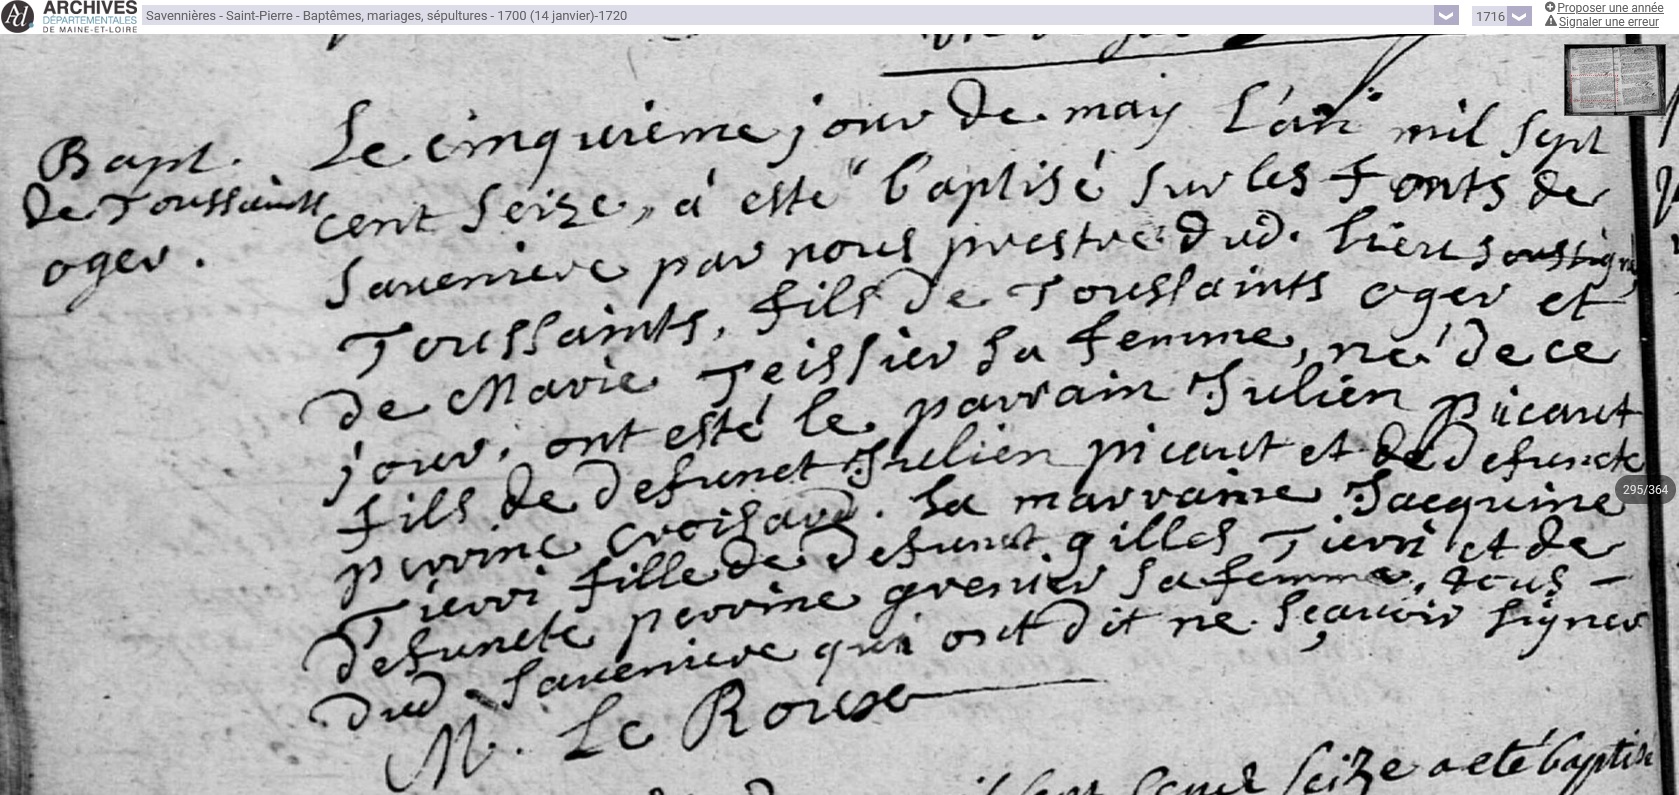 ARCHIVES
DÉPARTEMENTALES
DE MAINE-ET-LOIRE
Savennières - Saint-Pierre - Baptêmes, mariages, sépultures - 1700 (14 janvier)-1720
1716
Proposer une année
Signaler une erreur
295/364
Bapt.
de Toussaints
oger.
Le cinquieme jour de may L'an mil sept
cent seize, à esté baptisé sur les fonts de
Saveniere par nous prestre dud. lieu soussigné
Toussaints, fils de Toussaints oger et
de Marie Teissier sa femme, né de ce
jour, ont esté le parrain Julien picaut
fils de defunct Julien picaut et de defuncte
perrine croisard. La marraine Jacquine
Tierri fille de defunct gilles Tierri et de
defuncte perrine grenier sa femme, tous -
dud. Saveniere qui ont dit ne sçavoir signer
M. Le Roux
seize a eté baptisé